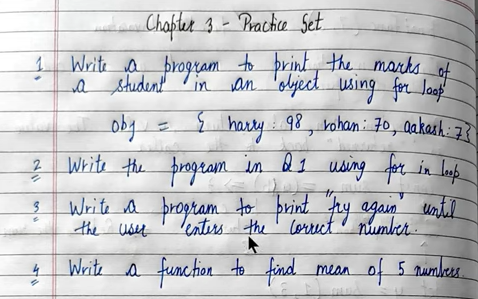 Chapter 3 - Practice Set
1 Write a program to print the marks of
a student in an object using for loop
obj = { harry : 98, rohan: 70, aakash: 7}
2 Write the program in Q1 using for in loop
3 Write a program to print "try again" until
the user enters the correct number.
4 Write a function to find mean of 5 numbers.